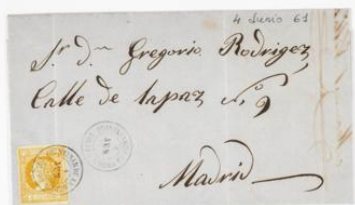 4 Junio 61
Sr. Dn. Gregorio Rodrigez
Calle de lapaz nº 9
Madrid